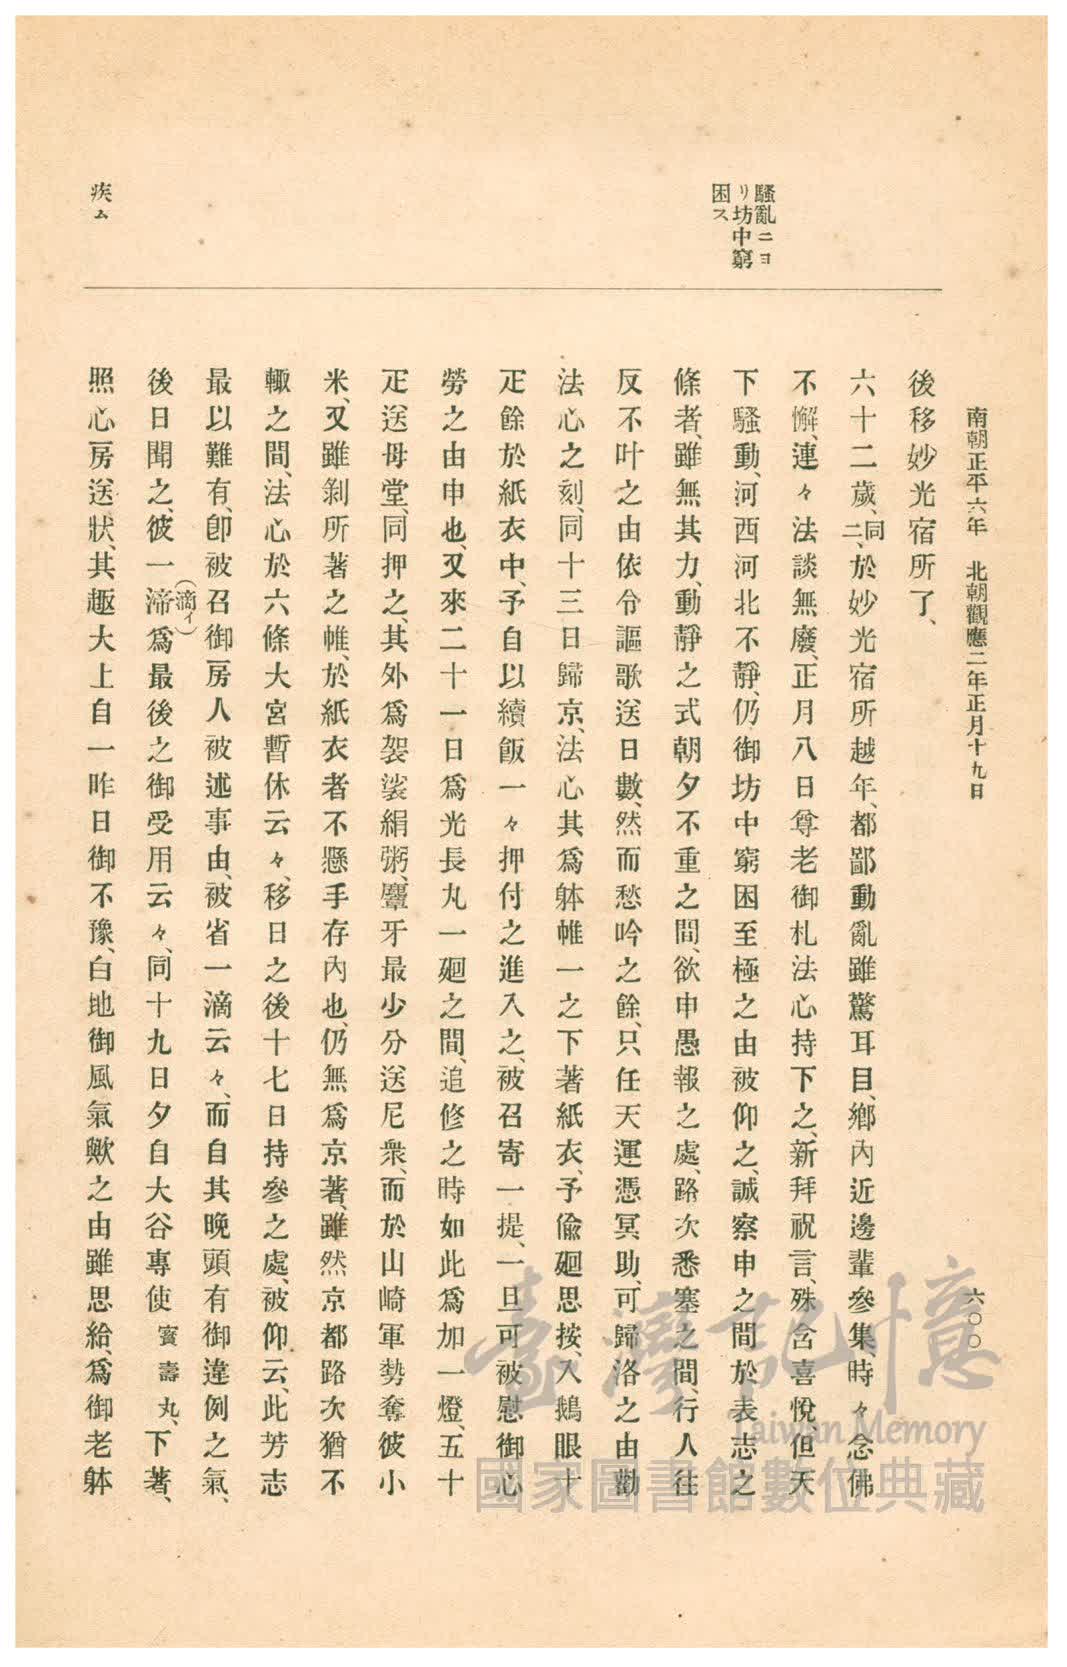 南朝正平六年　北朝觀應二年正月十九日
六〇〇
騷亂ニヨ
リ坊中窮
困ス
疾ム
後移妙光宿所了、
六十二歲、同二、於妙光宿所越年、都鄙動亂雖驚耳目、鄕內近邊輩參集、時々念佛
不懈、連々法談無廢、正月八日尊老御札法心持下之、新拜祝言、殊含喜悅、但天
下騷動、河西河北不靜、仍御坊中窮困至極之由被仰之、誠察申之間、於表志之
條者、雖無其力、動靜之式朝夕不重之間、欲申愚報之處、路次悉塞之間、行人往
反不叶之由依令謳歌送日數、然而愁吟之餘、只任天運憑冥助、可歸洛之由勸
法心之刻、同十三日歸京、法心其爲躰帷一之下著紙衣、予偸廻思按、入鵝眼十
疋餘於紙衣中、予自以續飯一々押付之進入之、被召寄一提、一旦可被慰御心
勞之由申也、又來二十一日爲光長丸一廻之間、追修之時如此爲加一燈、五十
疋送母堂、同押之、其外爲袈裟絹粥、麞牙最少分送尼衆、而於山崎軍勢奪彼小
米、又雖剝所著之帷、於紙衣者不懸手存內也、仍無爲京著、雖然京都路次猶不
輙之間、法心於六條大宮暫休云々、移日之後十七日持參之處、被仰云、此芳志
最以難有、卽被召御房人被述事由、被省一滴云々、而自其晚頭有御違例之氣、
後日聞之、彼一渧(滴イ)爲最後之御受用云々、同十九日夕自大谷專使寳壽丸、下著、
照心房送狀、其趣大上自一昨日御不豫、白地御風氣歟之由雖思給、爲御老躰
臺灣記憶
Taiwan Memory
國家圖書館數位典藏